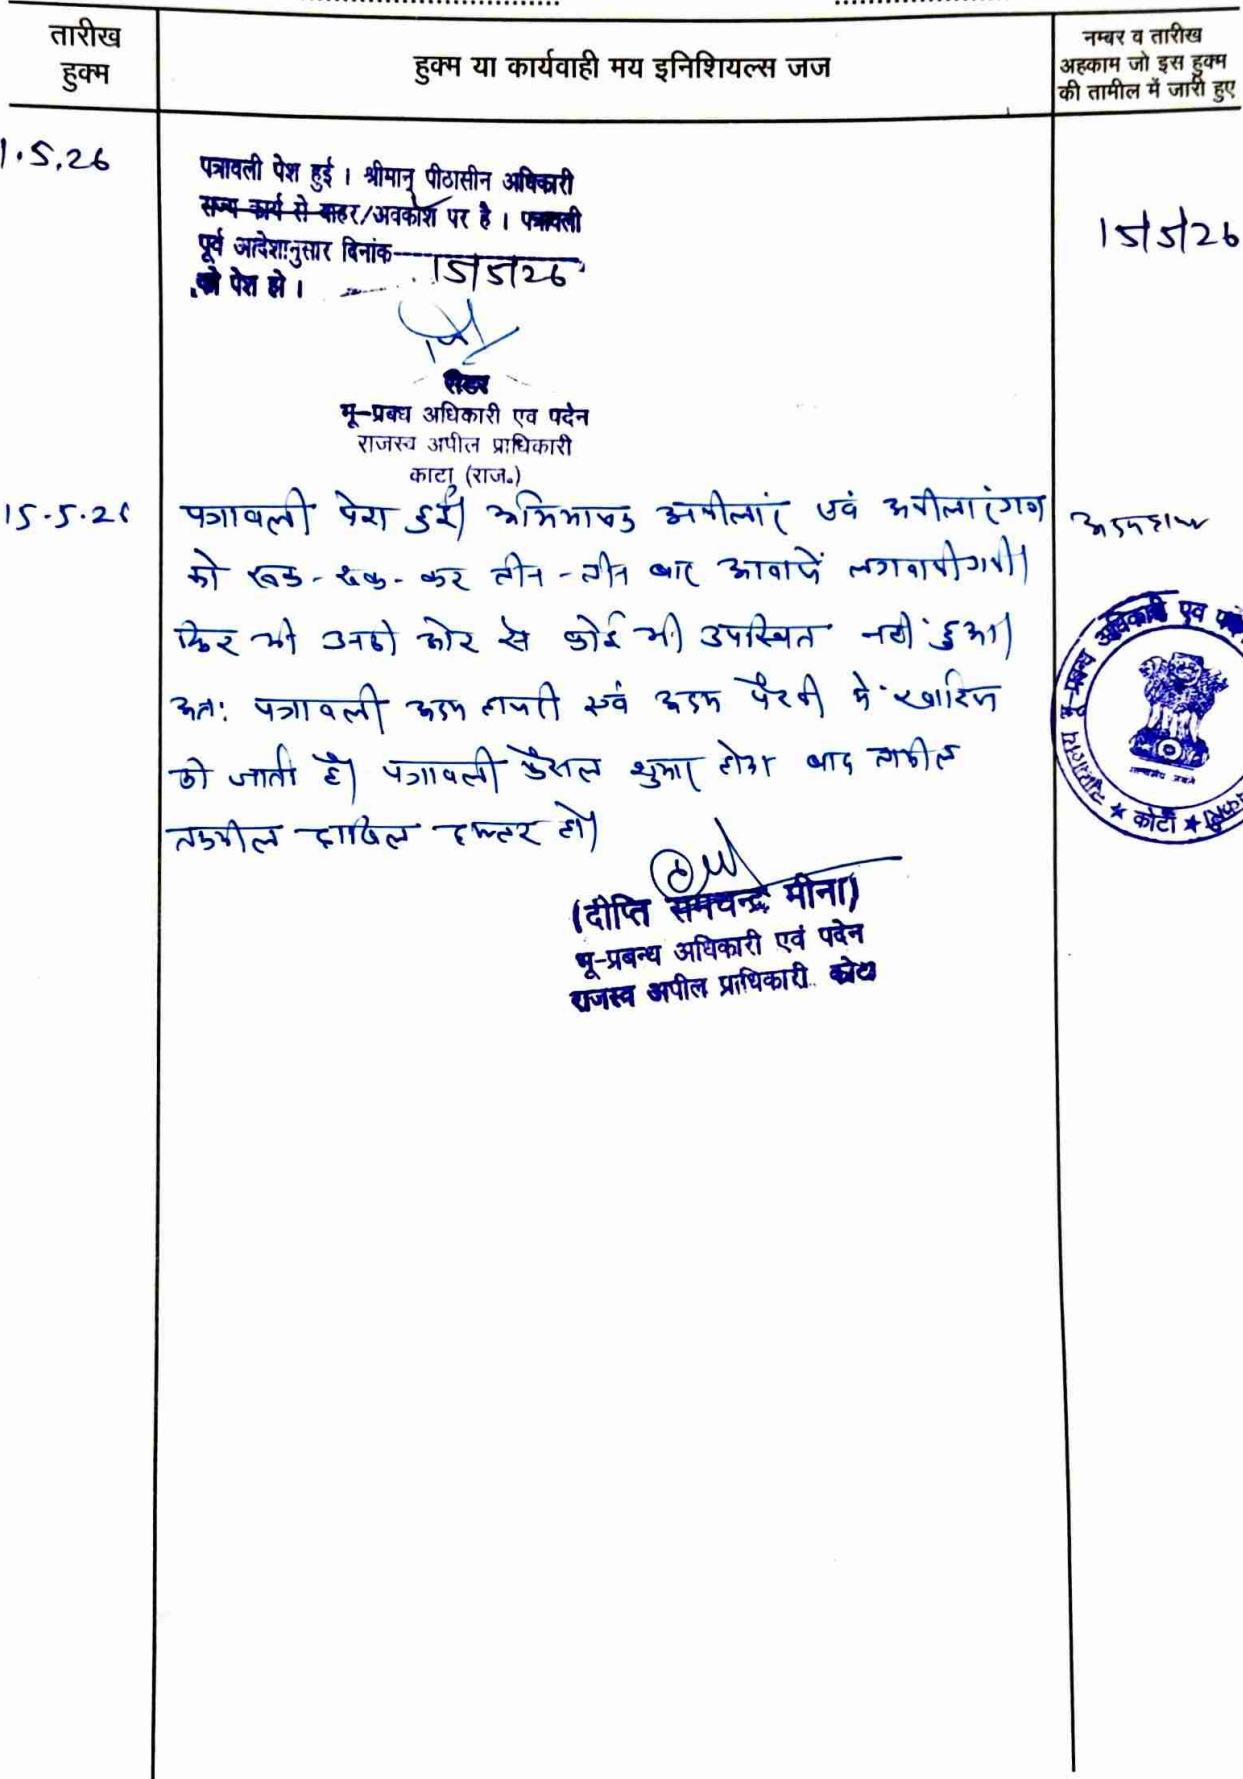 तारीख
हुक्म
हुक्म या कार्यवाही मय इनिशियल्स जज
नम्बर व तारीख
अहकाम जो इस हुक्म
की तामील में जारी हुए
1.5.26
पत्रावली पेश हुई । श्रीमान् पीठासीन अधिकारी
राज्य कार्य से बाहर/अवकाश पर है । पत्रावली
पूर्व आदेशानुसार दिनांक 15/5/26
को पेश हो ।
15/5/26
रीडर
भू-प्रबन्ध अधिकारी एवं पदेन
राजस्व अपील प्राधिकारी
कोटा (राज.)
15.5.26
पत्रावली पेश हुई। अभिभाषक अपीलांट एवं अपीलांटगण
को रूक-रूक-कर तीन-तीन बार आवाजें लगवायी गयी।
फिर भी उनकी ओर से कोई भी उपस्थित नहीं हुआ।
अतः पत्रावली अदम हाजरी एवं अदम पैरवी में खारिज
की जाती है। पत्रावली फैसल शुमार होकर बाद तामील
तकमील दाखिल दफ्तर हो।
(दीप्ति रामचन्द्र मीना)
भू-प्रबन्ध अधिकारी एवं पदेन
राजस्व अपील प्राधिकारी कोटा
भू-प्रबन्ध अधिकारी एवं
सत्यमेव जयते
★ कोटा ★